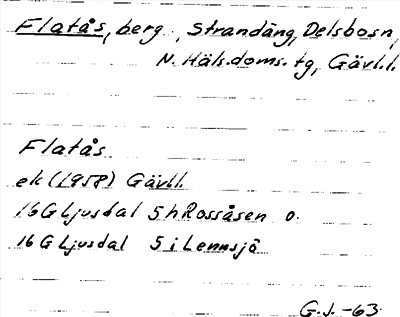 Flatås, berg, Strandäng, Delsbo sn,
N. Häls. doms. tg, Gävl. l.
Flatås
ek (1958) Gävl.l.
16G Ljusdal 5h Rossåsen o.
16G Ljusdal 5i Lennsjö
G.J. -63